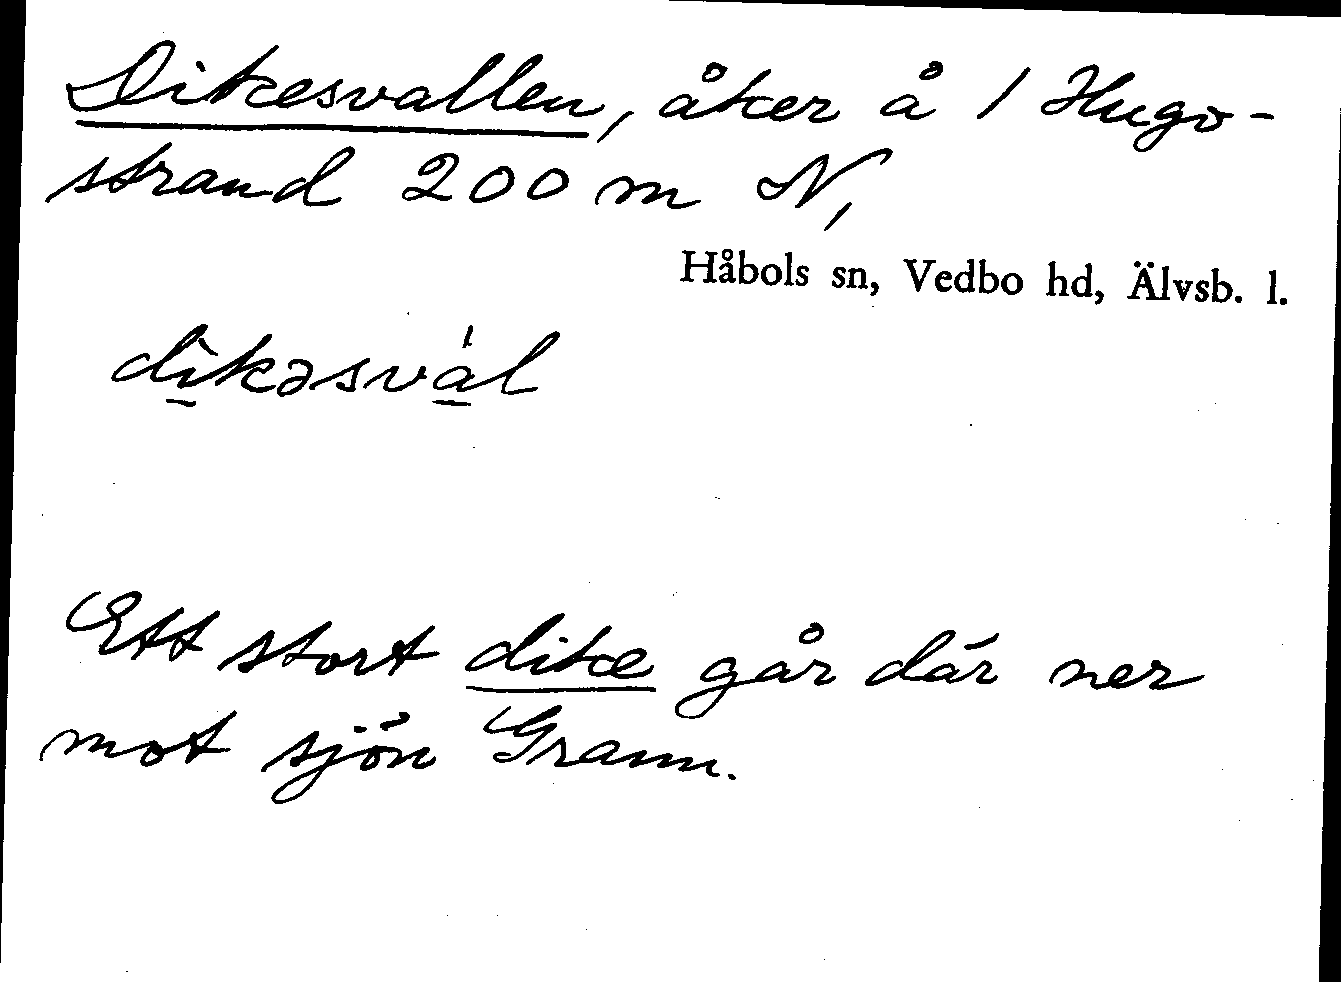 Dikesvallen, åker å 1 Hugo-
strand 200 m N,
Håbols sn, Vedbo hd, Älvsb. l.
dìkəsvál
Ett stort dike går där ner
mot sjön Grann.